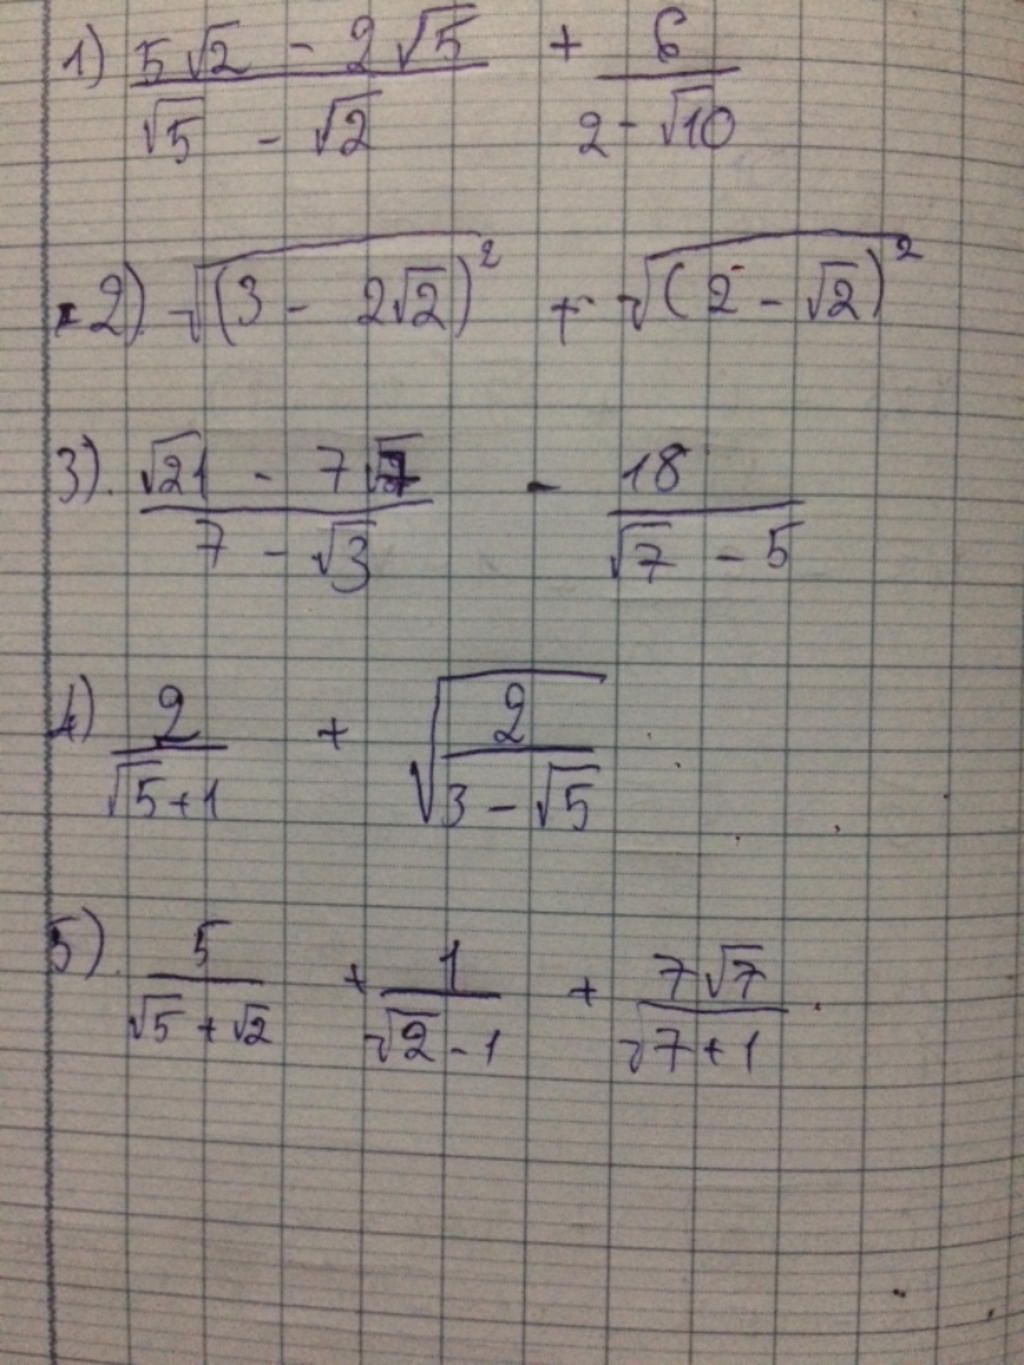 1) (5√2 - 2√5)/(√5 - √2) + 6/(2 - √10)
2) √(3 - 2√2)² + √(2 - √2)²
3) (√21 - 7√7)/(7 - √3) - 18/(√7 - 5)
4) 2/(√5 + 1) + √(2/(3 - √5))
5) 5/(√5 + √2) + 1/(√2 - 1) + 7√7/(√7 + 1)